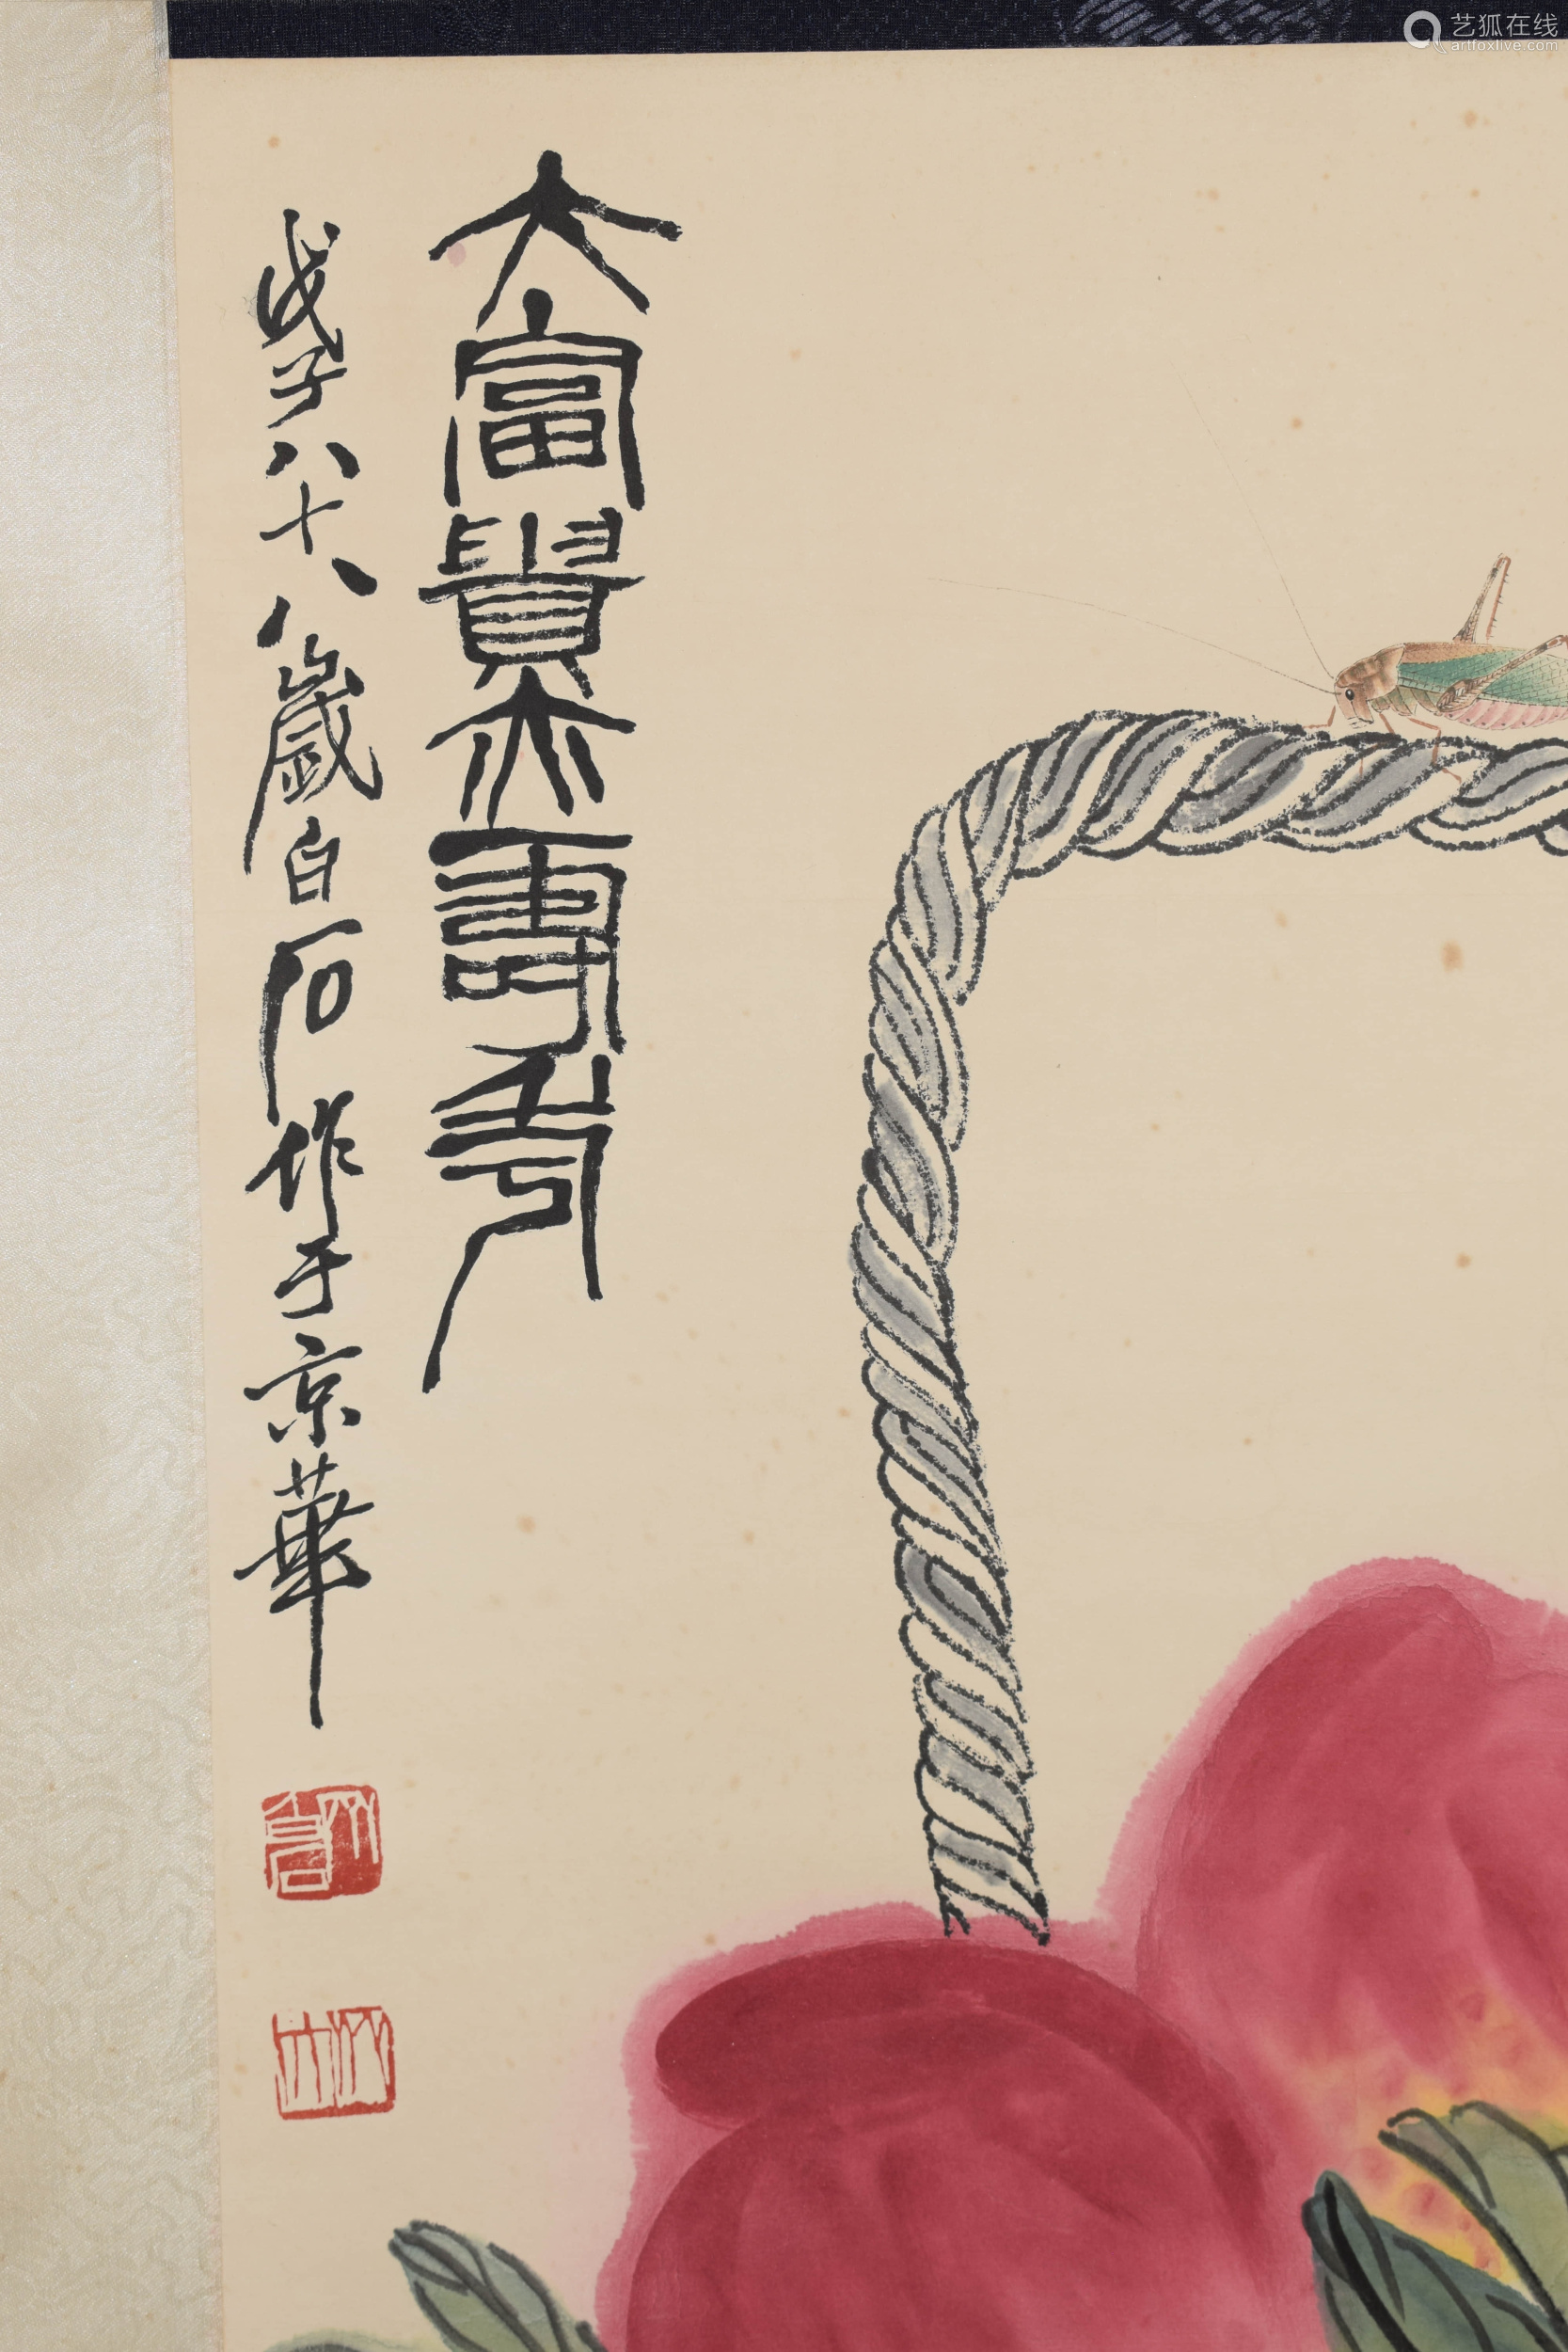 大富貴亦壽考
戊子八十八歲白石作于京華
艺狐在线
artfoxlive.com